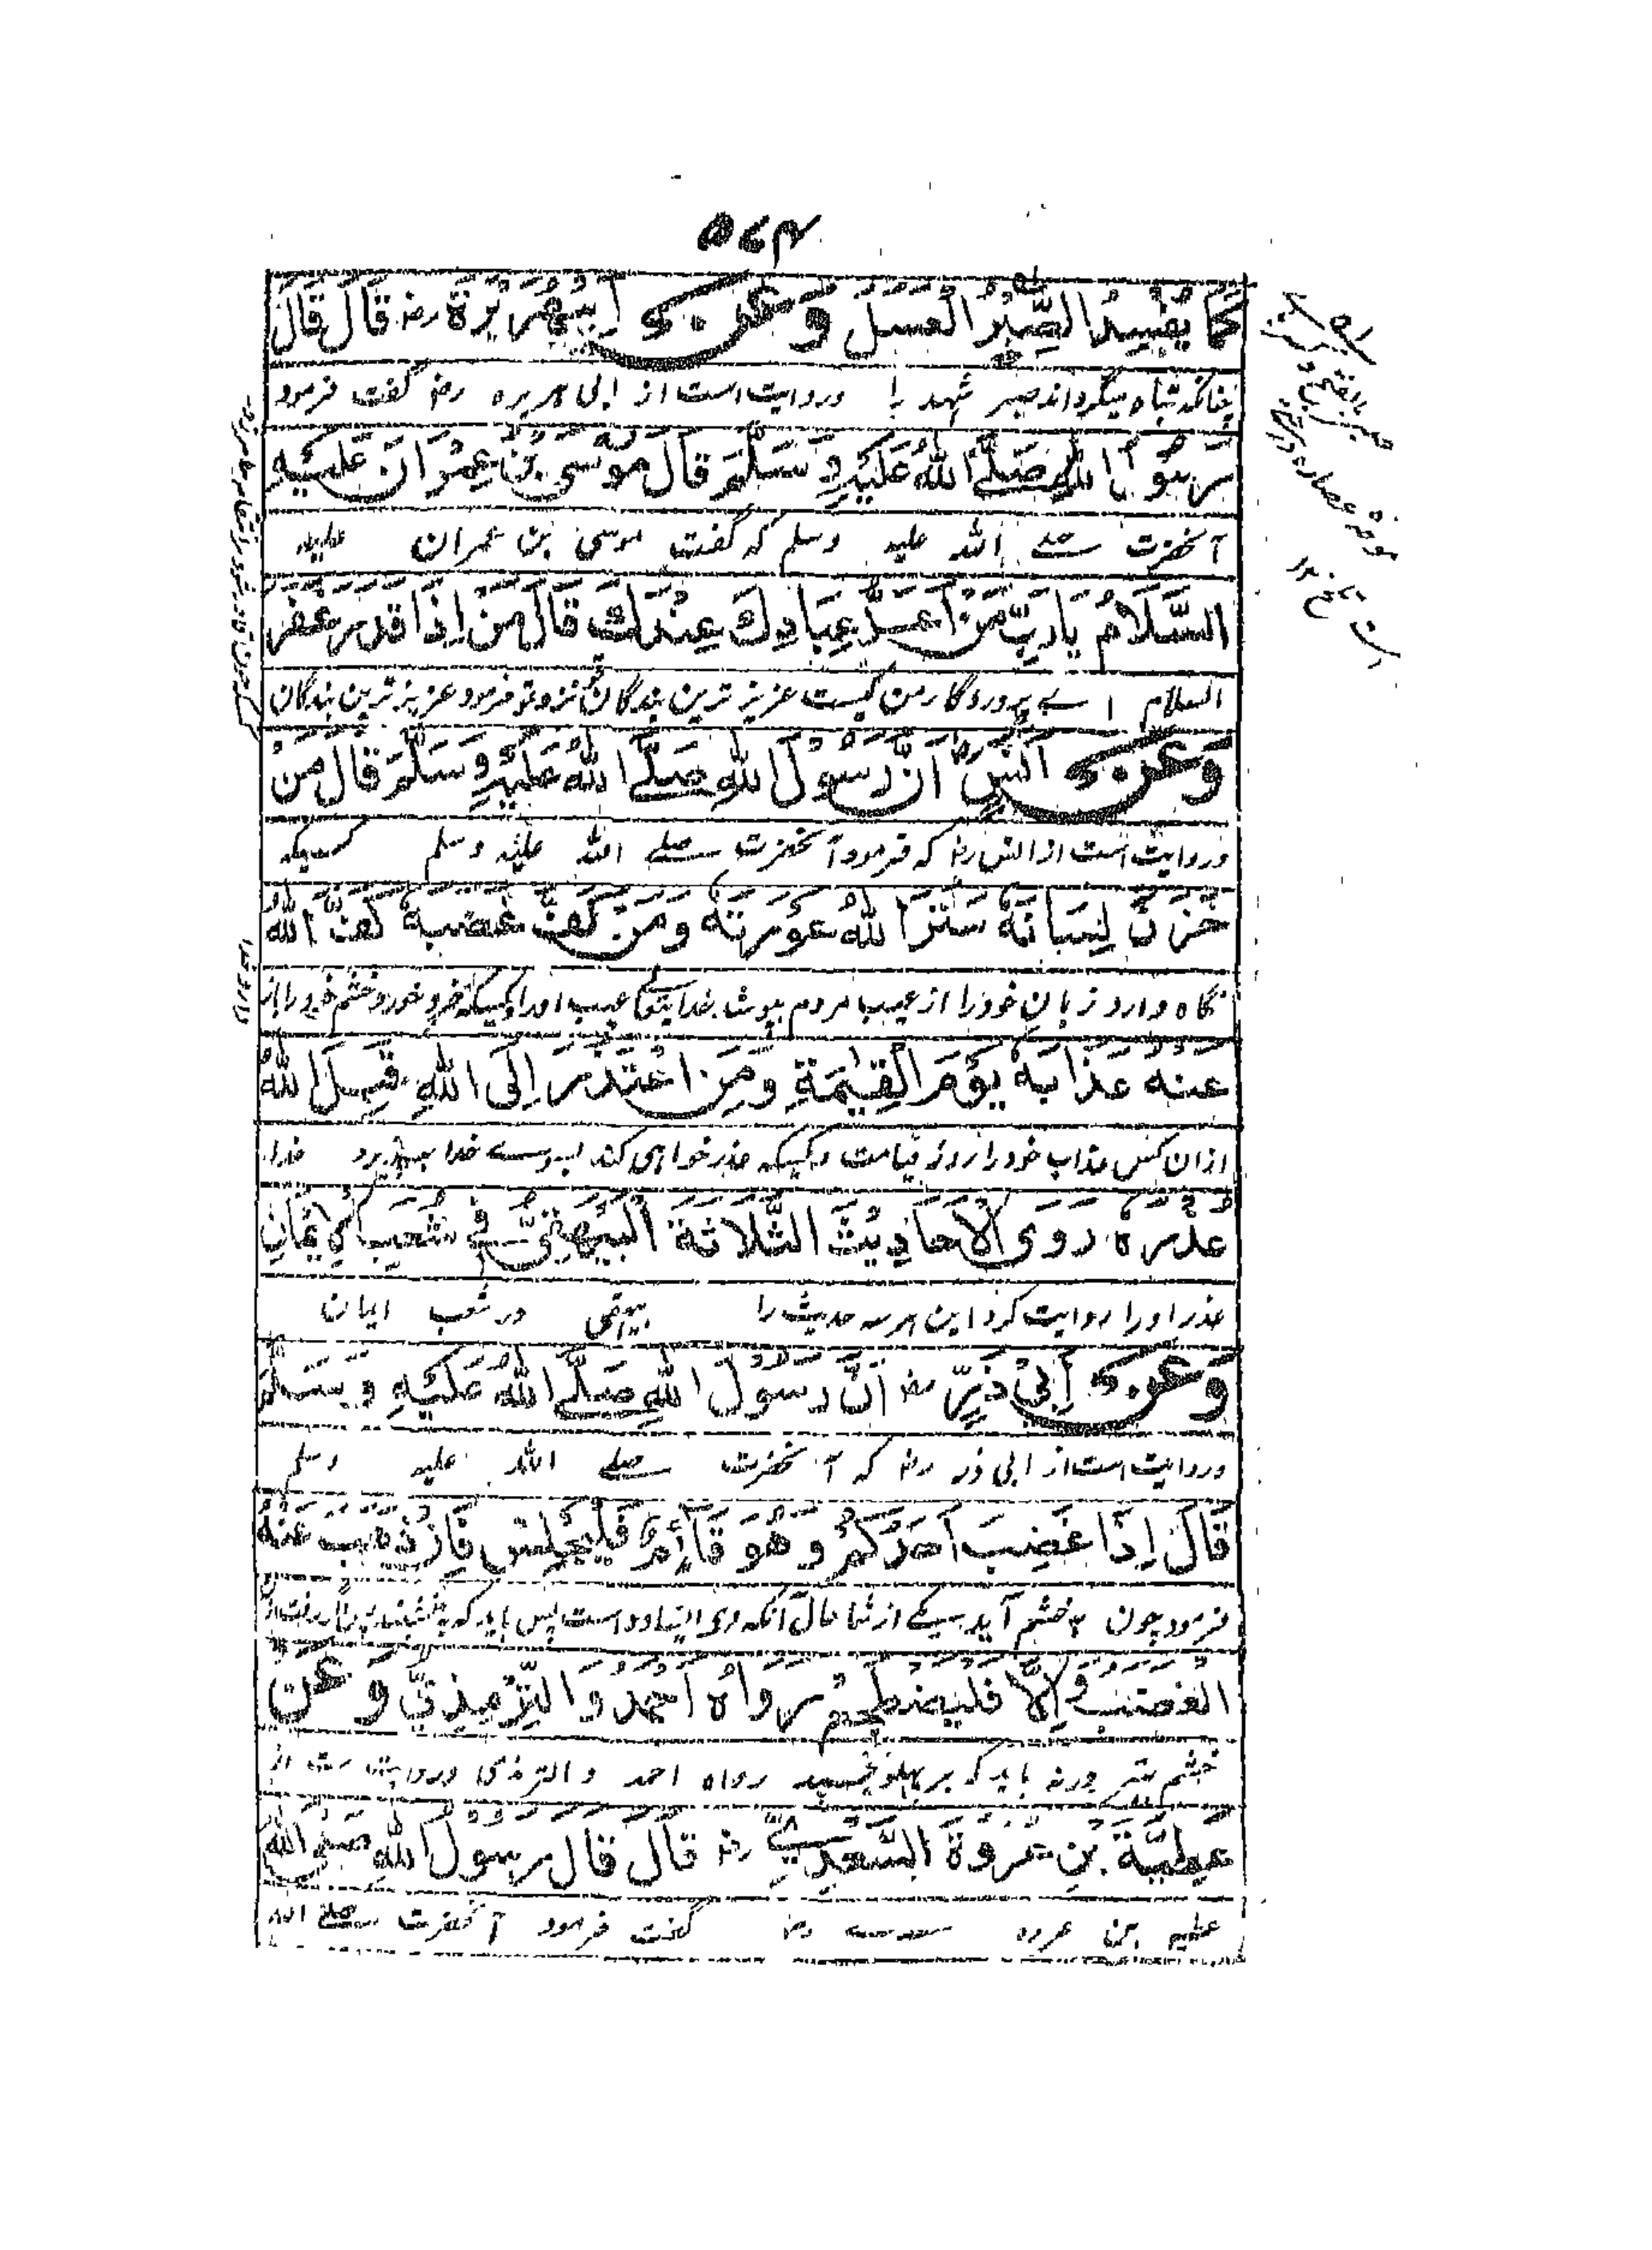 ۵۷۴
كَمَا يُفْسِدُ الصَّبِرُ الْعَسَلَ وَعَنْ أَبِي هُرَيْرَةَ رض قَالَ قَالَ
چنانکه تباه میگرداند صبر شهد را وروایت است از ابی هریره رض گفت فرمود
رَسُوْلُ اللهِ صَلَّے اللهُ عَلَيْهِ وَسَلَّمَ قَالَ مُوْسَى بْنُ عِمْرَانَ عَلَيْهِ
آنحضرت صلے الله علیه وسلم که گفت موسی بن عمران علیه
السَّلَامُ يَا رَبِّ مَنْ اَعَزُّ عِبَادِكَ عِنْدَكَ قَالَ مَنْ اِذَا قَدَرَ غَفَرَ
السلام اے پروردگار من کیست عزیز ترین بندگان نزد تو فرمود عزیز ترین بندگان
وَعَنْ اَنَسٍ رض اَنَّ رَسُوْلَ اللهِ صَلَّے اللهُ عَلَيْهِ وَسَلَّمَ قَالَ مَنْ
وروایت است از انس رض که فرمود آنحضرت صلے الله علیه وسلم کسیکه
خَزَنَ لِسَانَهُ سَتَرَ اللهُ عَوْرَتَهُ وَمَنْ كَفَّ غَضَبَهُ كَفَّ اللهُ
نگاه دارد زبان خود را از عیب مردم بپوشد خدایتعالی عیب او را و کسیکه فرو خورد خشم خود را باز
عنه عَذَابَهُ يَوْمَ الْقِيٰمَةِ وَمَنِ اعْتَذَرَ اِلَى اللهِ قَبِلَ اللهُ
از ان کس عذاب خود را روز قیامت و کسیکه عذر خواهی کند بسوے خدا بپذیرد خدا
عُذْرَهُ رَوَى الْاَحَادِيْثَ الثَّلَاثَةَ الْبَيْهَقِيُّ فِي شُعَبِ الْاِيْمَانِ
عذر او را روایت کرد این هر سه حدیث را بیهقی در شعب ایمان
وَعَنْ أَبِيْ ذَرٍّ رض اَنَّ رَسُوْلَ اللهِ صَلَّے اللهُ عَلَيْهِ وَسَلَّمَ
وروایت است از ابی ذر رض که آنحضرت صلے الله علیه وسلم
قَالَ اِذَا غَضِبَ اَحَدُكُمْ وَهُوَ قَائِمٌ فَلْيَجْلِسْ فَاِنْ ذَهَبَ عَنْهُ
فرمود چون بخشم آید یکے از شما حال آنکه وی ایستاده است پس باید که بنشیند
الْغَضَبُ وَاِلَّا فَلْيَضْطَجِعْ رَوَاهُ اَحْمَدُ وَالتِّرْمِذِيُّ وَعَنْ
خشم بهتر ورنه باید که بر پهلو خسپد رواه احمد و الترمذی وروایت است از
عَطِيَّةَ بْنِ عُرْوَةَ السَّعْدِيِّ رض قَالَ قَالَ رَسُوْلُ اللهِ صَلَّے اللهُ
عطیه بن عروه سعدے رض گفت فرمود آنحضرت صلے الله